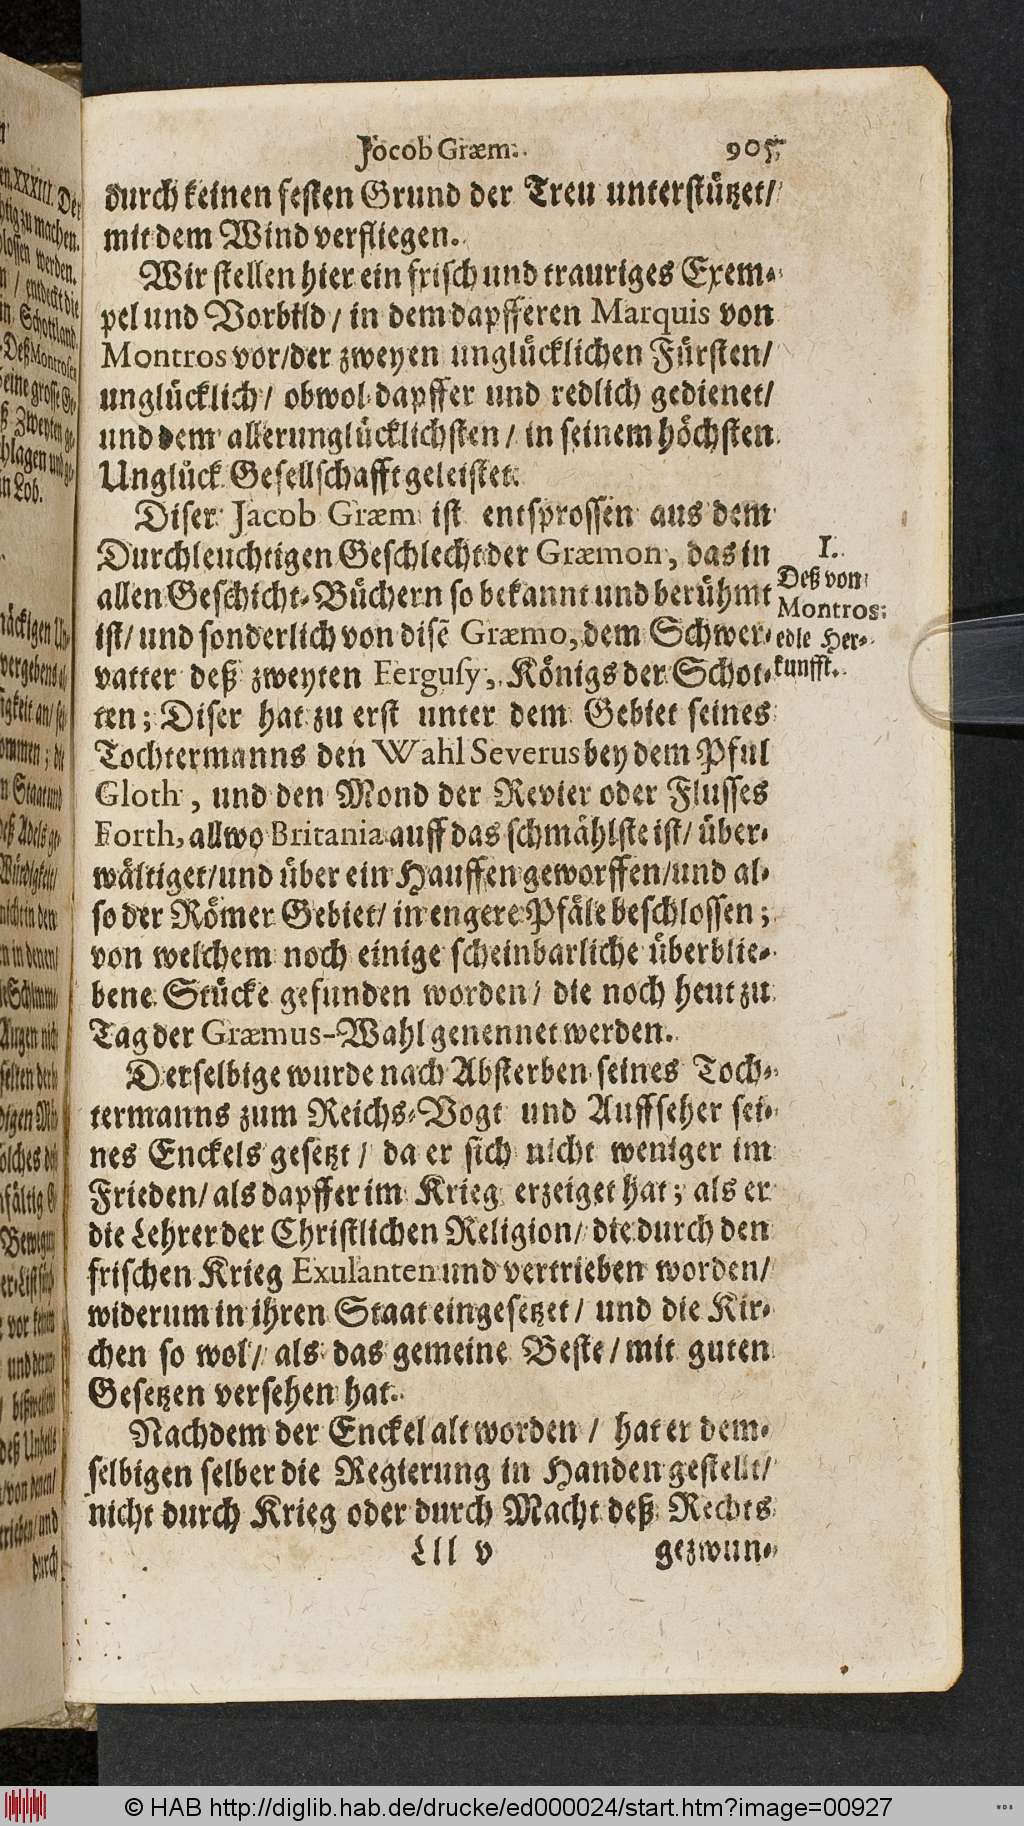 Jocob Græm. 905
durch keinen festen Grund der Treu unterstützet/
mit dem Wind verfliegen.
Wir stellen hier ein frisch und trauriges Exem-
pel und Vorbild / in dem dapfferen Marquis von
Montros vor/der zweyen unglücklichen Fürsten/
unglücklich/ obwol dapffer und redlich gedienet/
und dem allerunglücklichsten / in seinem höchsten
Unglück Gesellschafft geleistet.
Diser Jacob Græm ist entsprossen aus dem
Durchleuchtigen Geschlecht der Græmon, das in
allen Geschicht-Büchern so bekannt und berühmt
ist/ und sonderlich von disē Græmo, dem Schwer-
vatter deß zweyten Fergusy, Königs der Schot-
ten; Diser hat zu erst unter dem Gebiet seines
Tochtermanns den Wahl Severus bey dem Pful
Gloth, und den Mond der Revier oder Flusses
Forth, allwo Britania auff das schmählste ist/ über-
wältiget/und über ein Hauffen geworffen/und al-
so der Römer Gebiet/ in engere Pfäle beschlossen;
von welchem noch einige scheinbarliche überblie-
bene Stücke gefunden worden/ die noch heut zu
Tag der Græmus-Wahl genennet werden.
Derselbige wurde nach Absterben seines Toch-
termanns zum Reichs-Vogt und Auffseher sei-
nes Enckels gesetzt / da er sich nicht weniger im
Frieden/ als dapffer im Krieg erzeiget hat; als er
die Lehrer der Christlichen Religion/ die durch den
frischen Krieg Exulanten und vertrieben worden/
widerum in ihren Staat eingesetzet/ und die Kir-
chen so wol/ als das gemeine Beste/mit guten
Gesetzen versehen hat.
Nachdem der Enckel alt worden / hat er dem-
selbigen selber die Regierung in Handen gestellt/
nicht durch Krieg oder durch Macht deß Rechts
Lll v gezwun-
I.
Deß von
Montros
edle Her-
kunfft.
XXXIII. Der
zu machen.
werden.
/ entdeckt die
Schottland.
Deß Montrosen
eine grosse
Zweyten
schlagen und
Lob.
durch
© HAB http://diglib.hab.de/drucke/ed000024/start.htm?image=00927